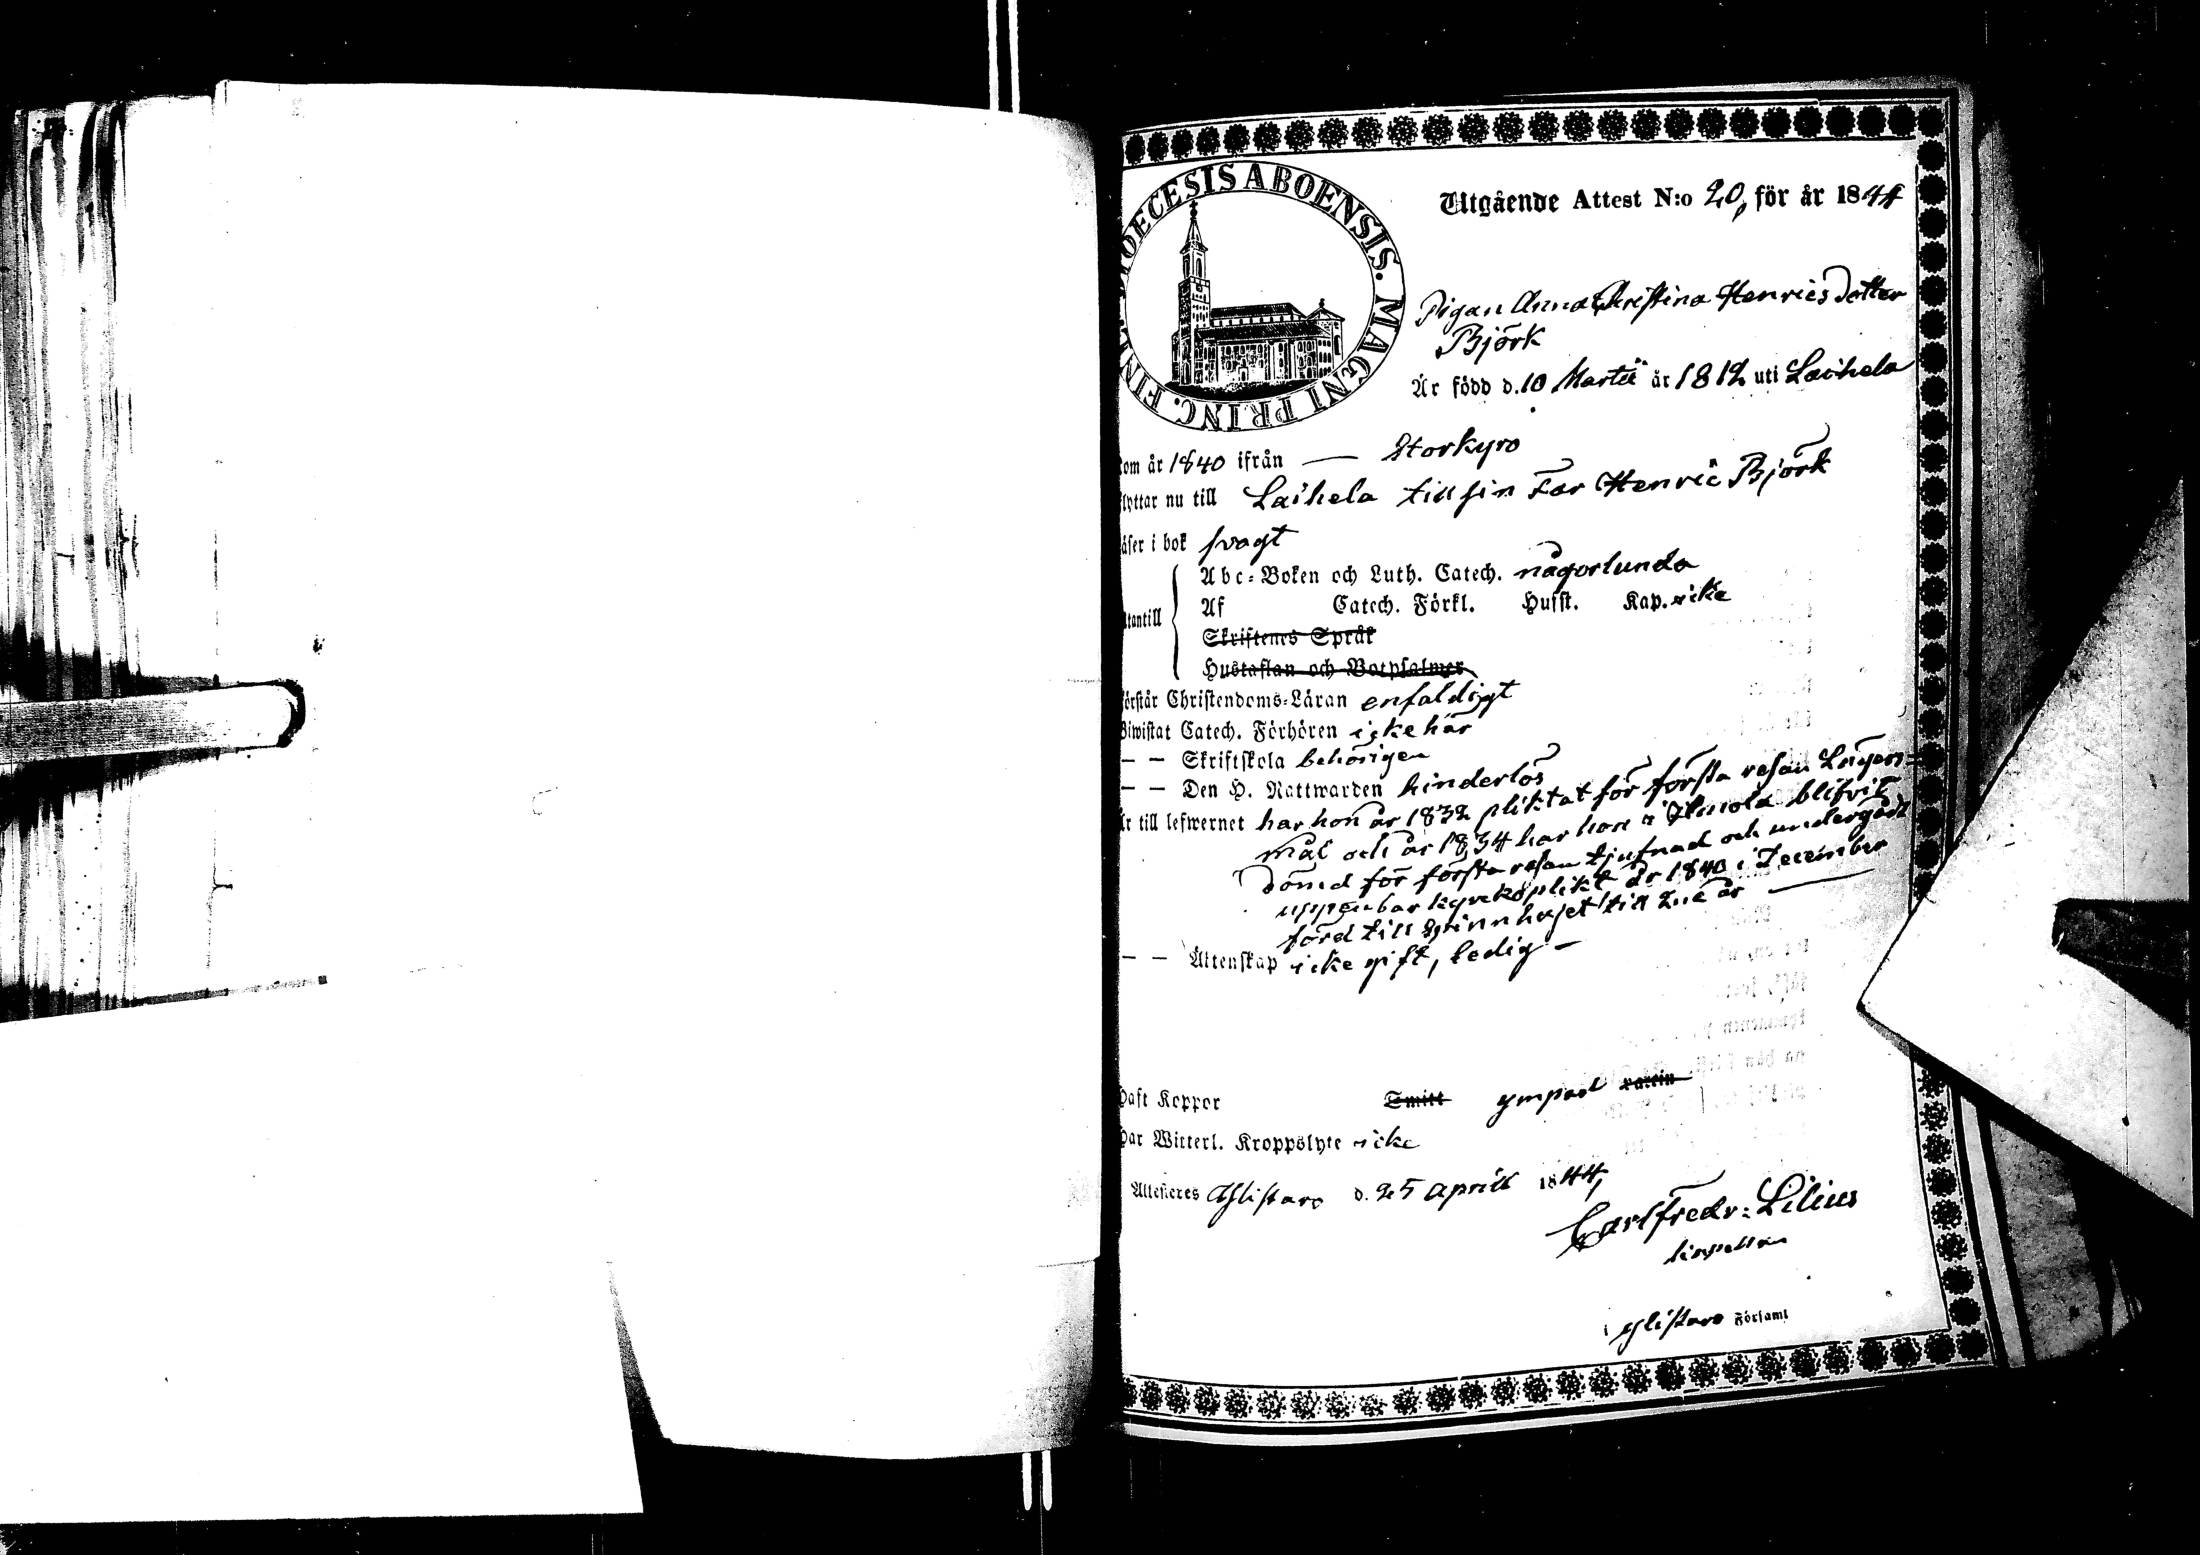 DIOECESIS ABOENSIS. MAGNI PRINC. FINL.
Utgående Attest N:o 20, för år 1844
Pigan Anna Christina Henricsdotter
Björk
Är född d. 10 Martii år 1812 uti Laihela
kom år 1840 ifrån — Storkyro
flyttar nu till Laihela till sin Far Henric Björk
läser i bok svagt
Abc-Boken och Luth. Catech. någorlunda
utantill
Af Catech. Förkl. Husst. Kap. icke
Skriftenes Språk
Hustaflan och Botpsalmer
Förstår Christendoms-Läran enfaldigt
Biwistat Catech. Förhören icke här
— — Skriftskola behörigen
— — Den H. Nattwarden hinderlös
Är till lefwernet har hon år 1832 pliktat för första resan Lägers-
mål och år 1834 har hon i Ilmola blifvit
dömd för första resan tjufnad och undergådt
uppenbar kyrkoplikt år 1840 i December
förd till spinnhuset till 2ne år —
— — Äktenskap icke gift, ledig —
Haft Koppor Smitt ympad vaccin
Har Witterl. Kroppslyte icke
Attesteres Ylistaro d. 25 April 1844,
Carl Fredr: Lilius
i Ylistaro Församl